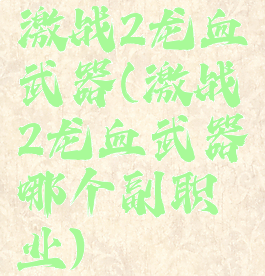 激战2龙血
武器(激战
2龙血武器
哪个副职
业)